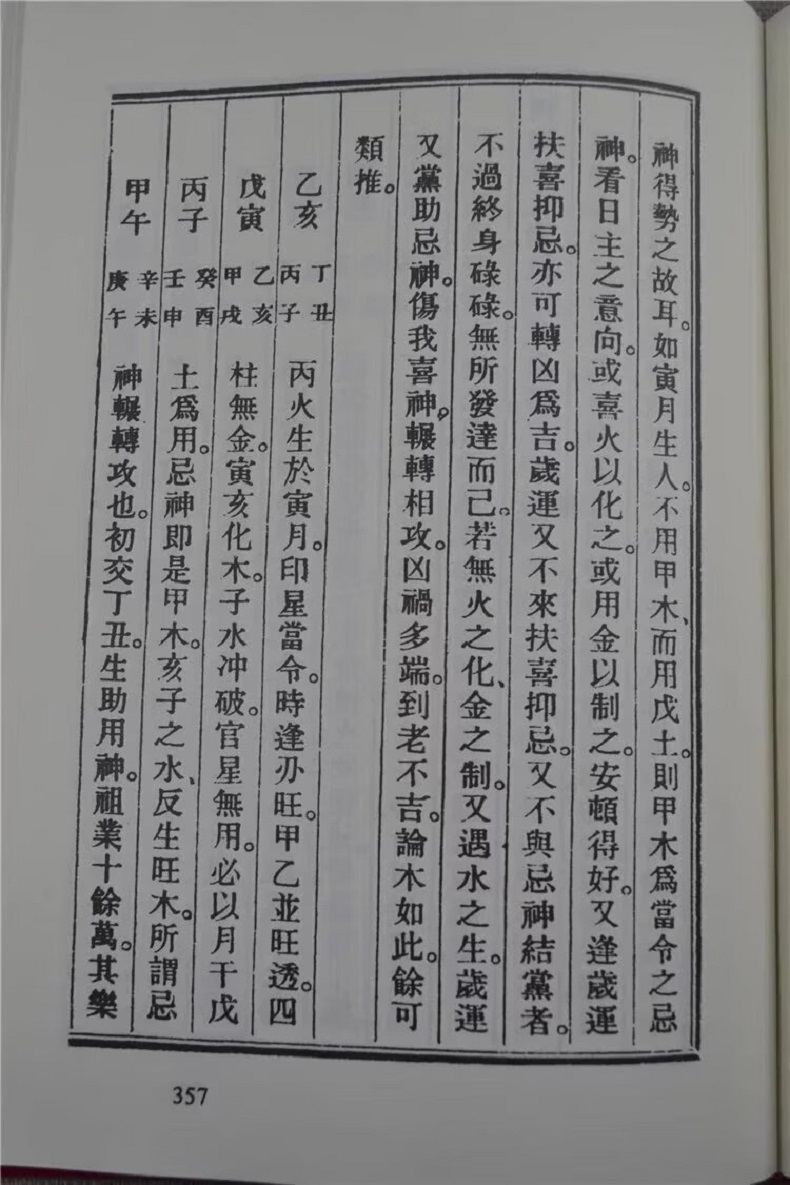 神得勢之故耳。如寅月生人。不用甲木、而用戊土。則甲木爲當令之忌
神。看日主之意向。或喜火以化之。或用金以制之。安頓得好。又逢歲運
扶喜抑忌。亦可轉凶爲吉。歲運又不來扶喜抑忌。又不與忌神結黨者。
不過終身碌碌。無所發達而已。若無火之化、金之制。又遇水之生。歲運
又黨助忌神。傷我喜神。輾轉相攻。凶禍多端。到老不吉。論木如此。餘可
類推。
乙亥 丁丑 丙子 丙火生於寅月。印星當令。時逢刃旺。甲乙並旺透。四
戊寅 乙亥 甲戌 柱無金。寅亥化木。子水冲破。官星無用。必以月干戊
丙子 癸酉 壬申 土爲用。忌神即是甲木。亥子之水、反生旺木。所謂忌
甲午 辛未 庚午 神輾轉攻也。初交丁丑。生助用神。祖業十餘萬。其樂
357